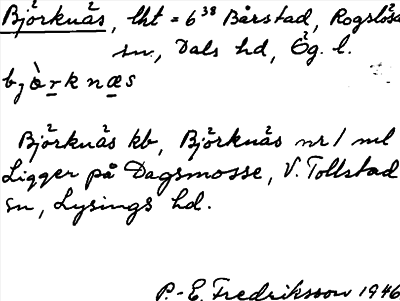 Björknäs, lht = 6³⁸ Bårstad, Rogslösa
sn., Dals hd, Ög. l.
bjö̀r̲knæ̲s
Björknäs kb, Björknäs nr 1 ml
Ligger på Dagsmosse, V. Tollstad
sn, Lysings hd.
P.-E. Fredriksson 1946